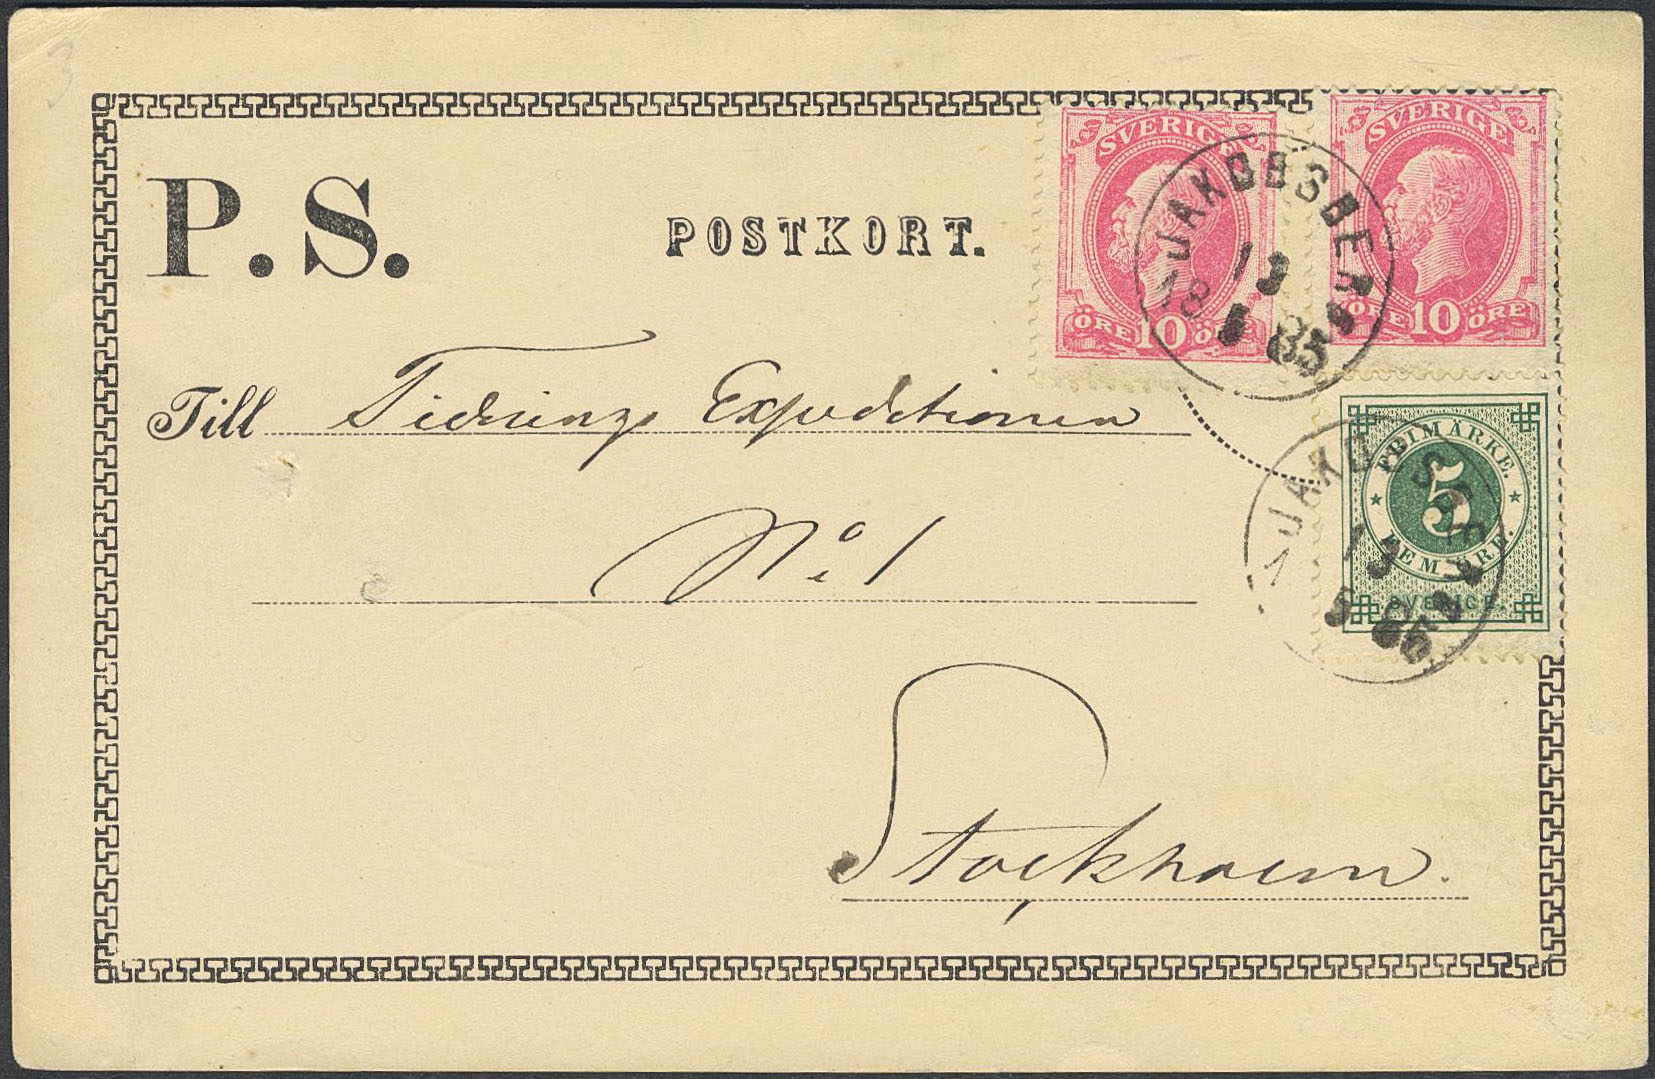 P. S.
POSTKORT.
SVERIGE
ÖRE 10 ÖRE
SVERIGE
ÖRE 10 ÖRE
JAKOBSBERG
13
5 85
Till Tidnings Expeditionen
FRIMÄRKE.
5
FEM ÖRE.
SVERIGE.
JAKOBSBERG
13
5 85
No 1
Stockholm.